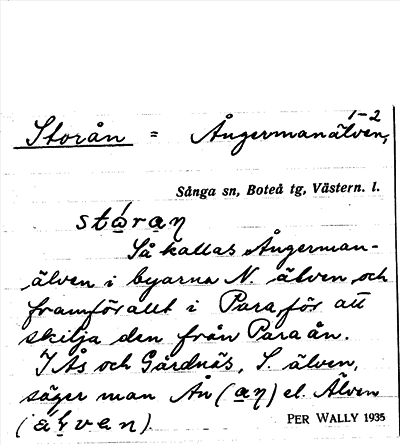 1-2
Storån = Ångermanälven,
Sånga sn, Boteå tg, Västern. l.
Så kallas Ångerman-
älven i byarna N. älven och
framförallt i Para för att
skilja den från Paraån.
I Ås och Gårdnäs, S. älven,
säger man Ån (aη) el. Älven
PER WALLY 1935